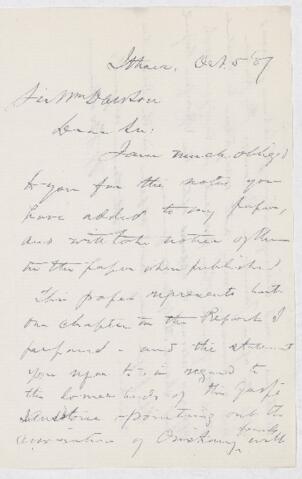 Ithaca, Oct. 5 '87
Sir Wm Dawson
Dear Sir:
I am much obliged
to you for the notes you
have added to my paper,
and will take notice of them
in the paper when published
This paper represents but
one chapter in the Report I
- and the statement
you in regard to
the lower beds of the Gaspé
Sandstone - pointing out the
of Oriskany with